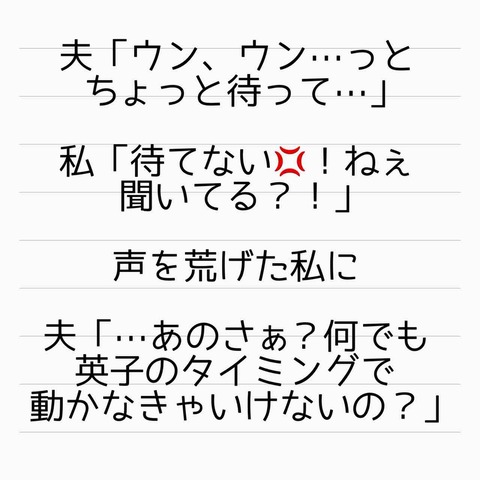 夫「ウン、ウン…っと
ちょっと待って…」
私「待てない💢！ねぇ
聞いてる？！」
声を荒げた私に
夫「…あのさぁ？何でも
英子のタイミングで
動かなきゃいけないの？」